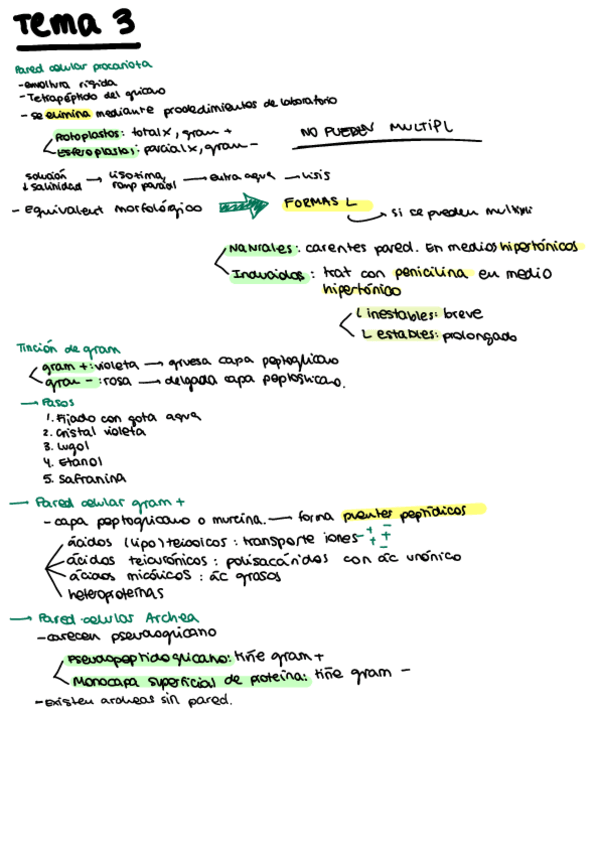 Tema 3
Pared celular procariota
- envoltura rígida
- Tetrapéptido del glicano
- se elimina mediante procedimientos de laboratorio
Protoplastos: total x, gram +
NO PUEDEN MULTIPL
Esferoplastos: parcial x, gram -
solución ↓ salinidad → lisozima, romp parcial → entra agua → lisis
- Equivalent morfológico → FORMAS L
si se pueden multipli
Naturales: carentes pared. En medios hipertónicos
Inducidos: trat con penicilina en medio
hipertónico
L inestables: breve
L estables: prolongado
Tinción de gram
gram +: violeta → gruesa capa peptoglicano
gram -: rosa → delgada capa peptoglicano.
→ Pasos
1. Fijado con gota agua
2. Cristal violeta
3. Lugol
4. Etanol
5. Safranina
→ Pared celular gram +
- capa peptoglicano o mureína. → forma puentes peptídicos
ácidos (lipo) teicoicos: transporte iones + - + -
ácidos teicurónicos: polisacáridos con ác urónico
ácidos micólicos: ác grasos
heteroproteínas
→ Pared celular Archea
- carecen pseudoglicano
Pseudopeptidoglicano: tiñe gram +
Monocapa superficial de proteína: tiñe gram -
- Existen archeas sin pared.